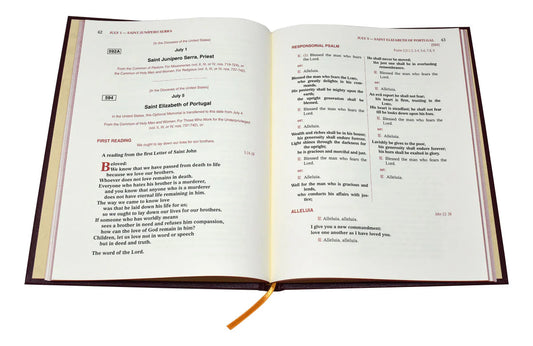 62
JULY 1 — SAINT JUNÍPERO SERRA
[In the Dioceses of the United States]
592A
July 1
Saint Junípero Serra, Priest
From the Common of Pastors: For Missionaries (vol. II, III, or IV, nos. 719-724), or
the Common of Holy Men and Women: For Religious (vol. II, III, or IV, nos. 737-742).
[In the Dioceses of the United States]
594
July 5
Saint Elizabeth of Portugal
In the United States, this Optional Memorial is transferred to this date from July 4.
From the Common of Holy Men and Women: For Those Who Work for the Underprivileged
(vol. II, III, or IV, nos. 737-742), or
FIRST READING
We ought to lay down our lives for our brothers.
A reading from the first Letter of Saint John
3:14-18
Beloved:
We know that we have passed from death to life
because we love our brothers.
Whoever does not love remains in death.
Everyone who hates his brother is a murderer,
and you know that anyone who is a murderer
does not have eternal life remaining in him.
The way we came to know love
was that he laid down his life for us;
so we ought to lay down our lives for our brothers.
If someone who has worldly means
sees a brother in need and refuses him compassion,
how can the love of God remain in him?
Children, let us love not in word or speech
but in deed and truth.
The word of the Lord.
JULY 5 — SAINT ELIZABETH OF PORTUGAL
63
[594]
RESPONSORIAL PSALM
Psalm 112:1-2, 3-4, 5-6, 7-8, 9
℟. (1) Blessed the man who fears the
Lord.
or:
℟. Alleluia.
Blessed the man who fears the LORD,
who greatly delights in his commands.
His posterity shall be mighty upon the
earth;
the upright generation shall be
blessed.
℟. Blessed the man who fears the
Lord.
or:
℟. Alleluia.
Wealth and riches shall be in his house;
his generosity shall endure forever.
Light shines through the darkness for
the upright;
he is gracious and merciful and just.
℟. Blessed the man who fears the
Lord.
or:
℟. Alleluia.
Well for the man who is gracious and
lends,
who conducts his affairs with jus-
tice;
He shall never be moved;
the just one shall be in everlasting
remembrance.
℟. Blessed the man who fears the
Lord.
or:
℟. Alleluia.
An evil report he shall not fear;
his heart is firm, trusting in the
LORD.
His heart is steadfast; he shall not fear
till he looks down upon his foes.
℟. Blessed the man who fears the
Lord.
or:
℟. Alleluia.
Lavishly he gives to the poor;
his generosity shall endure forever;
his horn shall be exalted in glory.
℟. Blessed the man who fears the
Lord.
or:
℟. Alleluia.
ALLELUIA
John 13:34
℟. Alleluia, alleluia.
I give you a new commandment:
love one another as I have loved you.
℟. Alleluia, alleluia.